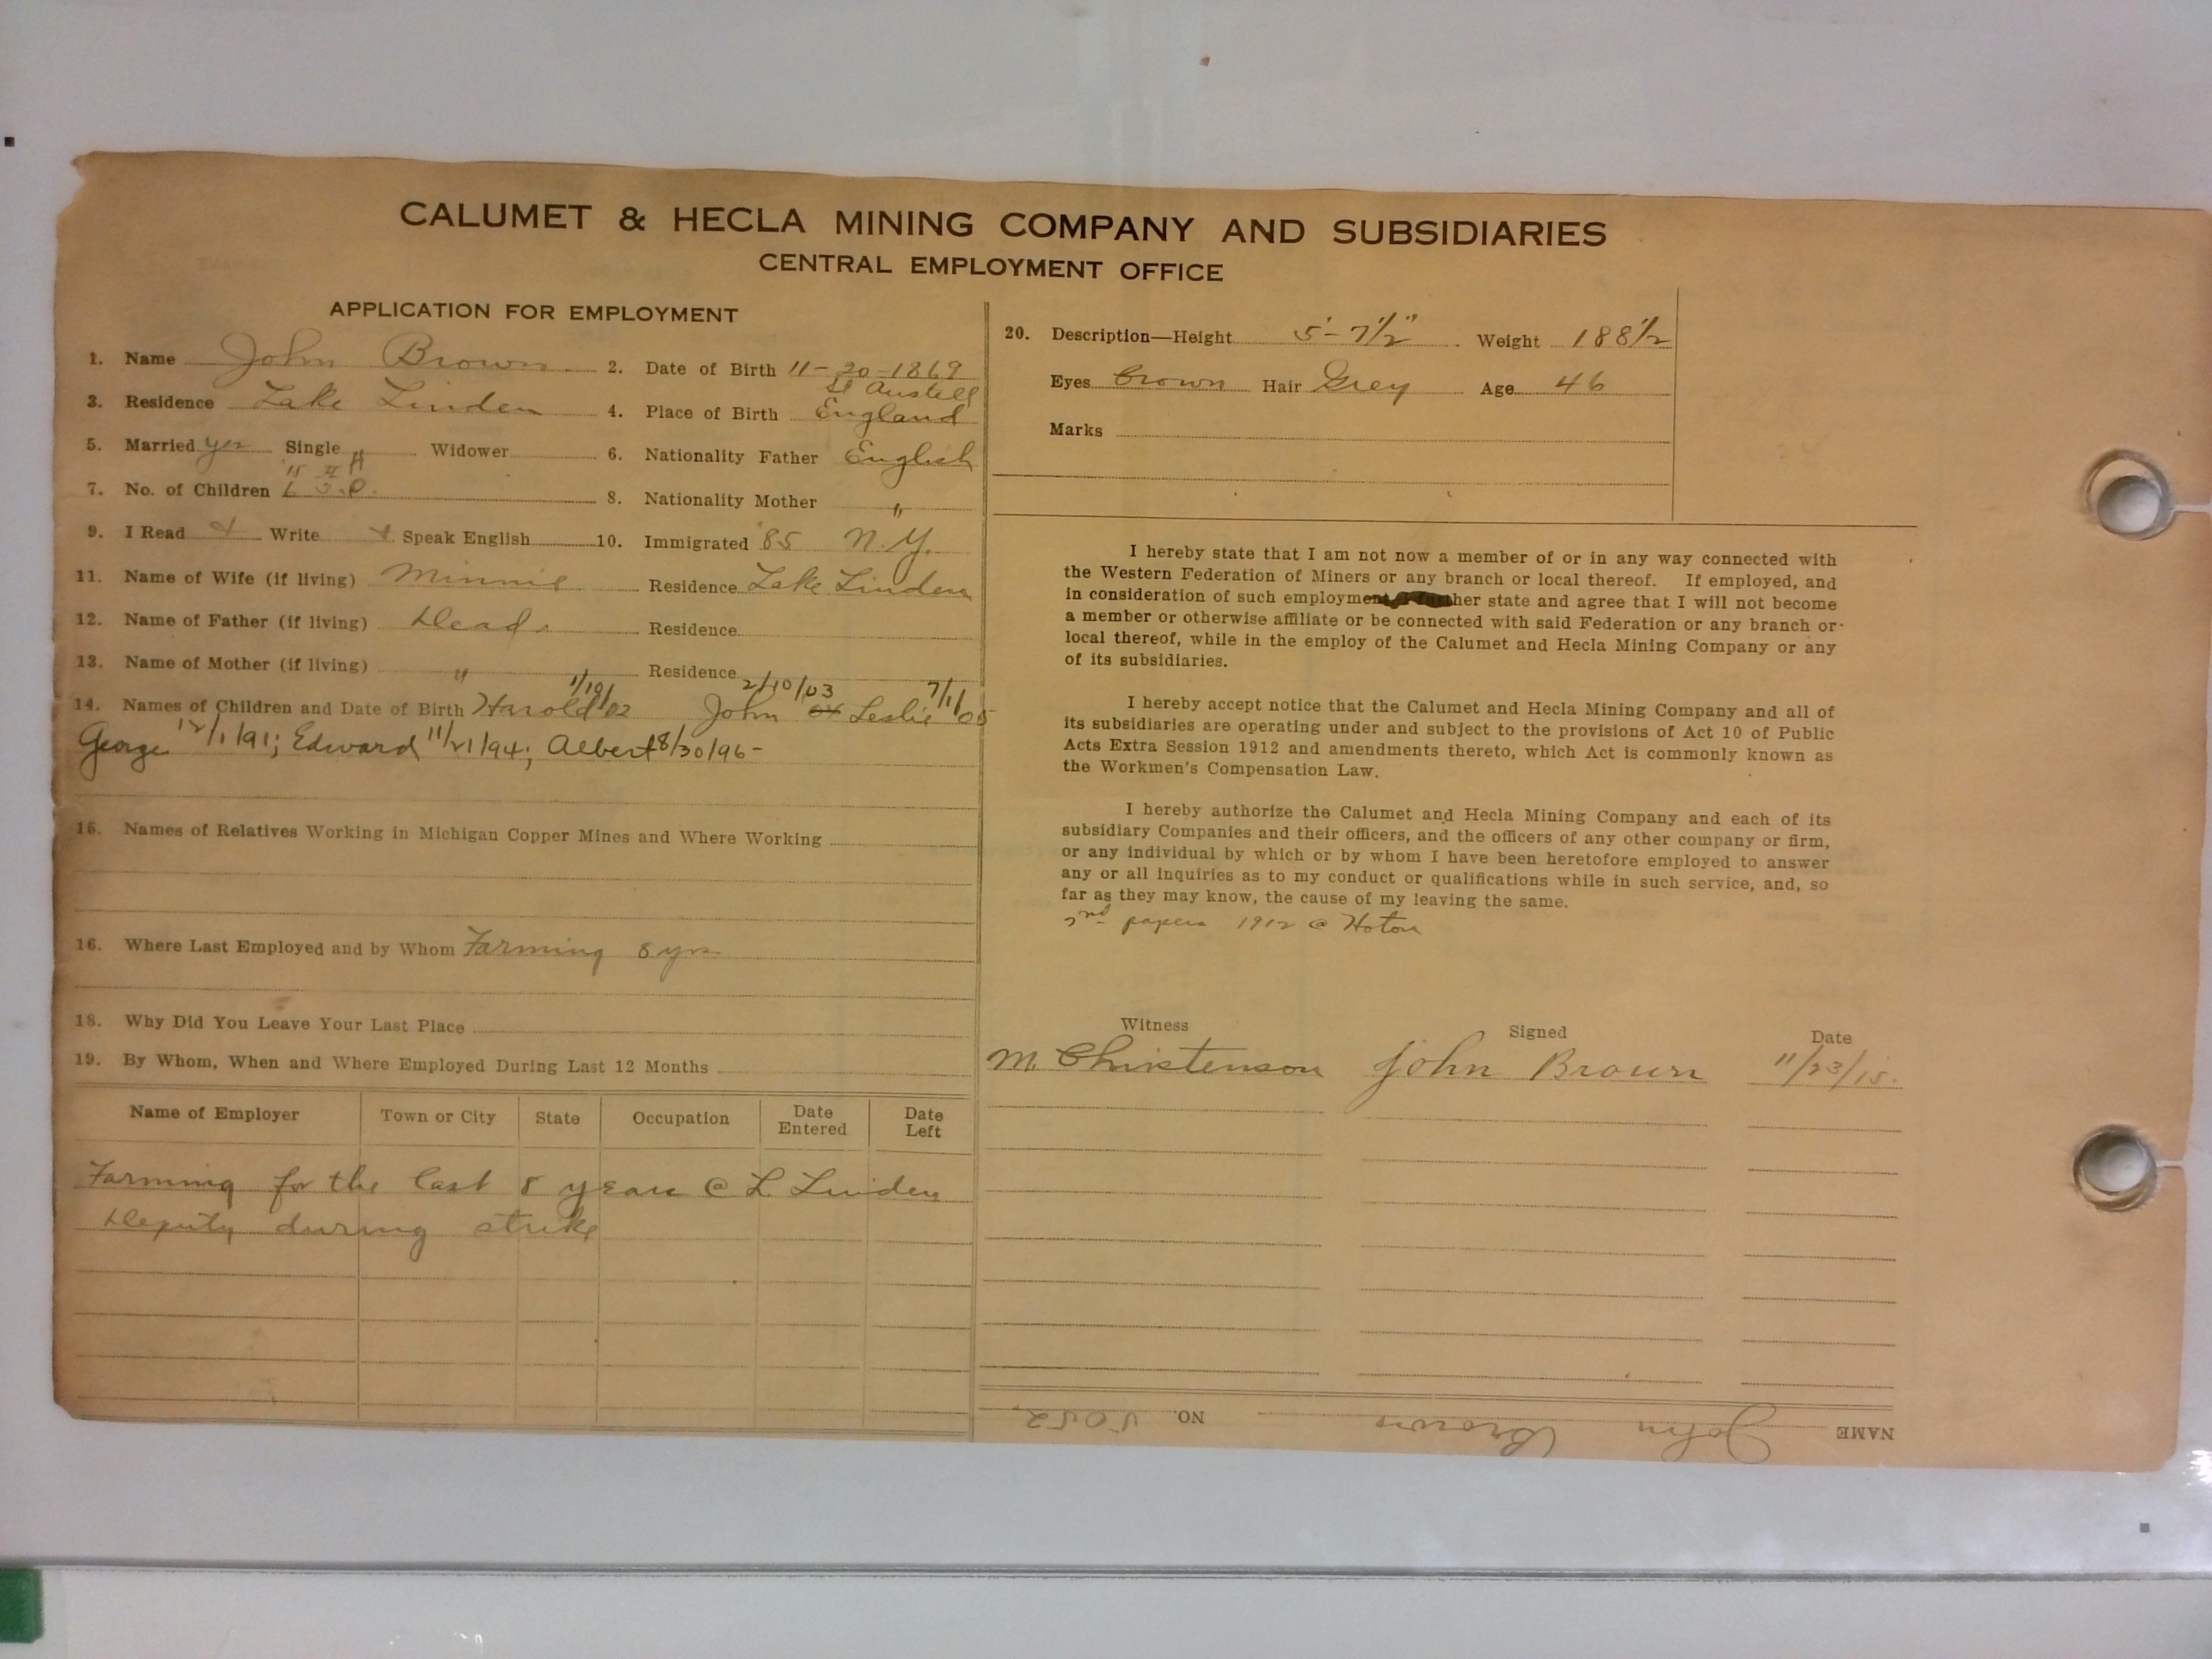 CALUMET & HECLA MINING COMPANY AND SUBSIDIARIES
CENTRAL EMPLOYMENT OFFICE
APPLICATION FOR EMPLOYMENT
1. Name John Brown 2. Date of Birth 11-20-1869
3. Residence Lake Linden 4. Place of Birth St Austell England
5. Married yes Single Widower 6. Nationality Father English
7. No. of Children 8. Nationality Mother "
9. I Read Write Speak English 10. Immigrated '85 N.Y.
11. Name of Wife (if living) Minnie Residence Lake Linden
12. Name of Father (if living) Dead Residence
13. Name of Mother (if living) " Residence
14. Names of Children and Date of Birth Harold 1/10/02 John 2/10/03 Leslie 7/1/05
George 12/1/91; Edward 11/21/94; Albert 8/30/96-
15. Names of Relatives Working in Michigan Copper Mines and Where Working
16. Where Last Employed and by Whom Farming 8 yrs
18. Why Did You Leave Your Last Place
19. By Whom, When and Where Employed During Last 12 Months
Name of Employer Town or City State Occupation Date Entered Date Left
Farming for the last 8 years @ L. Linden
Deputy during strike
20. Description—Height 5'-7 1/2" Weight 188 1/2
Eyes Brown Hair Grey Age 46
Marks
I hereby state that I am not now a member of or in any way connected with
the Western Federation of Miners or any branch or local thereof. If employed, and
in consideration of such employment her state and agree that I will not become
a member or otherwise affiliate or be connected with said Federation or any branch or
local thereof, while in the employ of the Calumet and Hecla Mining Company or any
of its subsidiaries.
I hereby accept notice that the Calumet and Hecla Mining Company and all of
its subsidiaries are operating under and subject to the provisions of Act 10 of Public
Acts Extra Session 1912 and amendments thereto, which Act is commonly known as
the Workmen's Compensation Law.
I hereby authorize the Calumet and Hecla Mining Company and each of its
subsidiary Companies and their officers, and the officers of any other company or firm,
or any individual by which or by whom I have been heretofore employed to answer
any or all inquiries as to my conduct or qualifications while in such service, and, so
far as they may know, the cause of my leaving the same.
2nd papers 1912 @ Hoton
Witness Signed Date
M. Christenson John Brown 11/23/15.
NAME John Brown NO. 5052